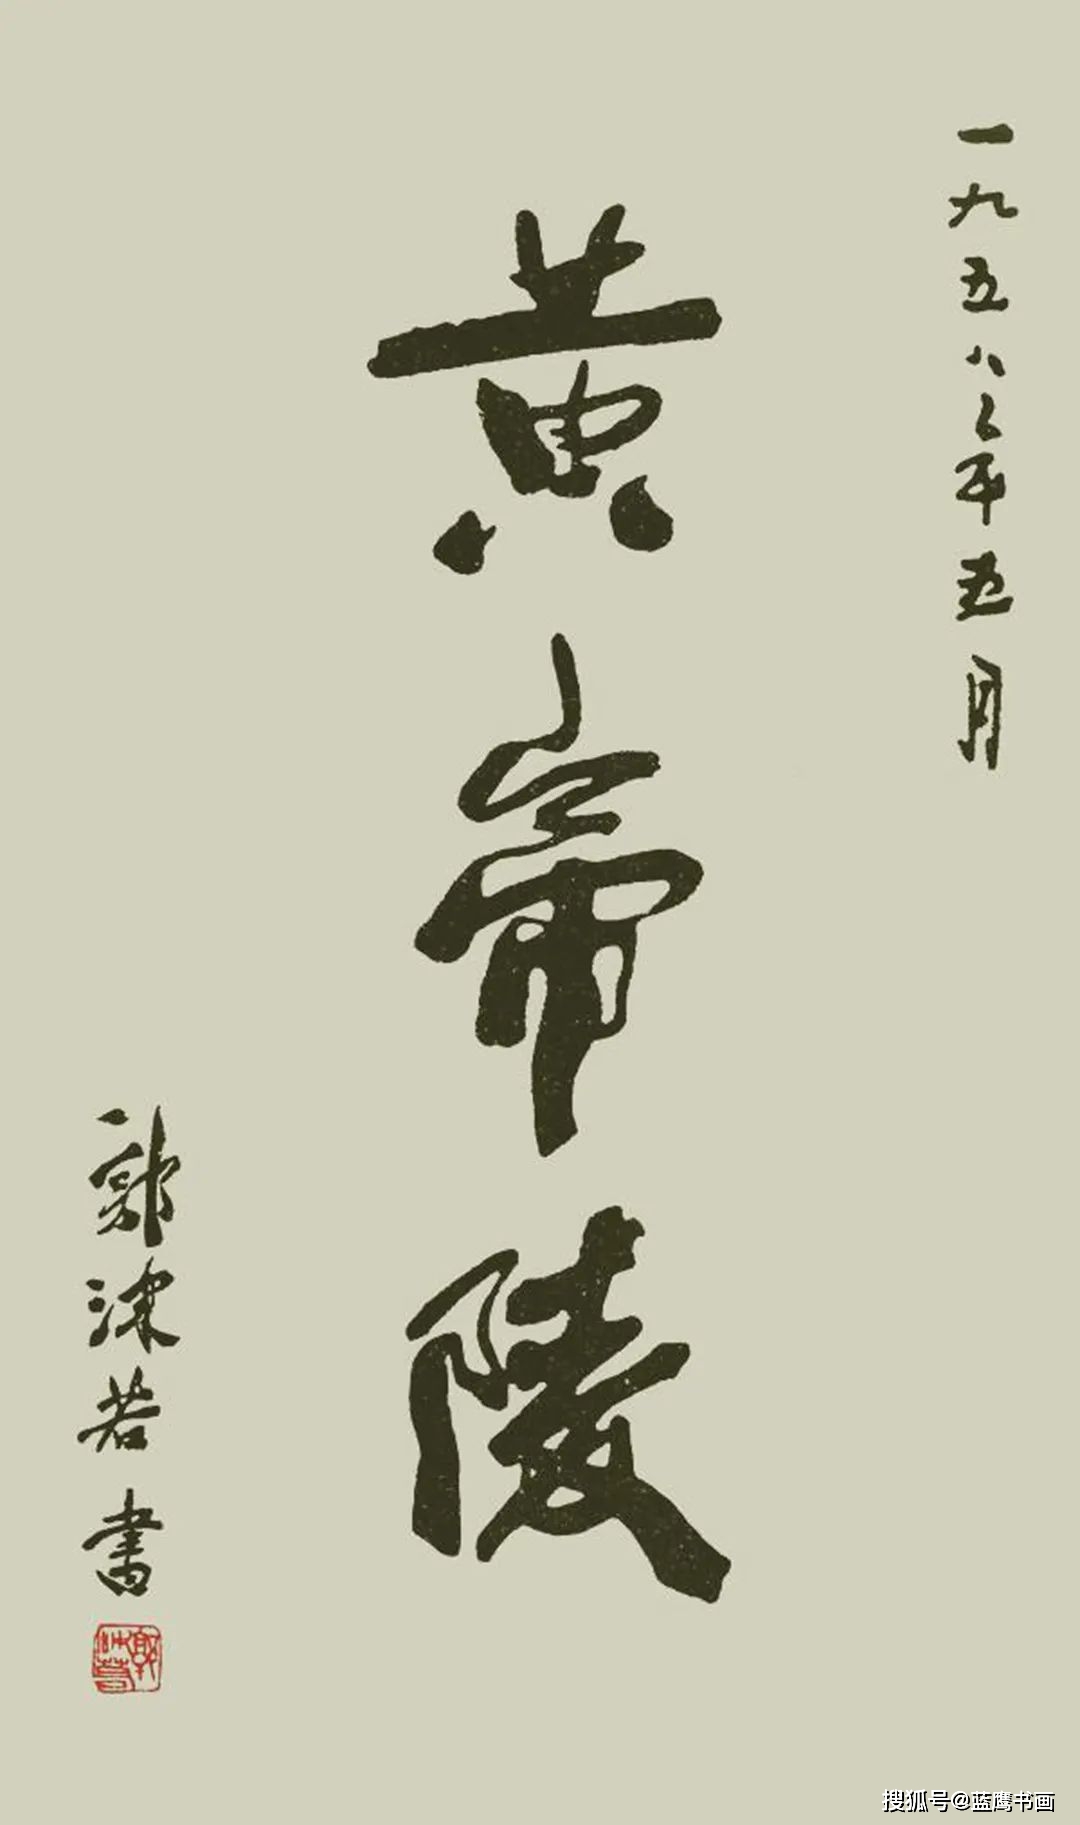 一九五八年五月
黄帝陵
郭沫若书
郭沫若
搜狐号@蓝鹰书画